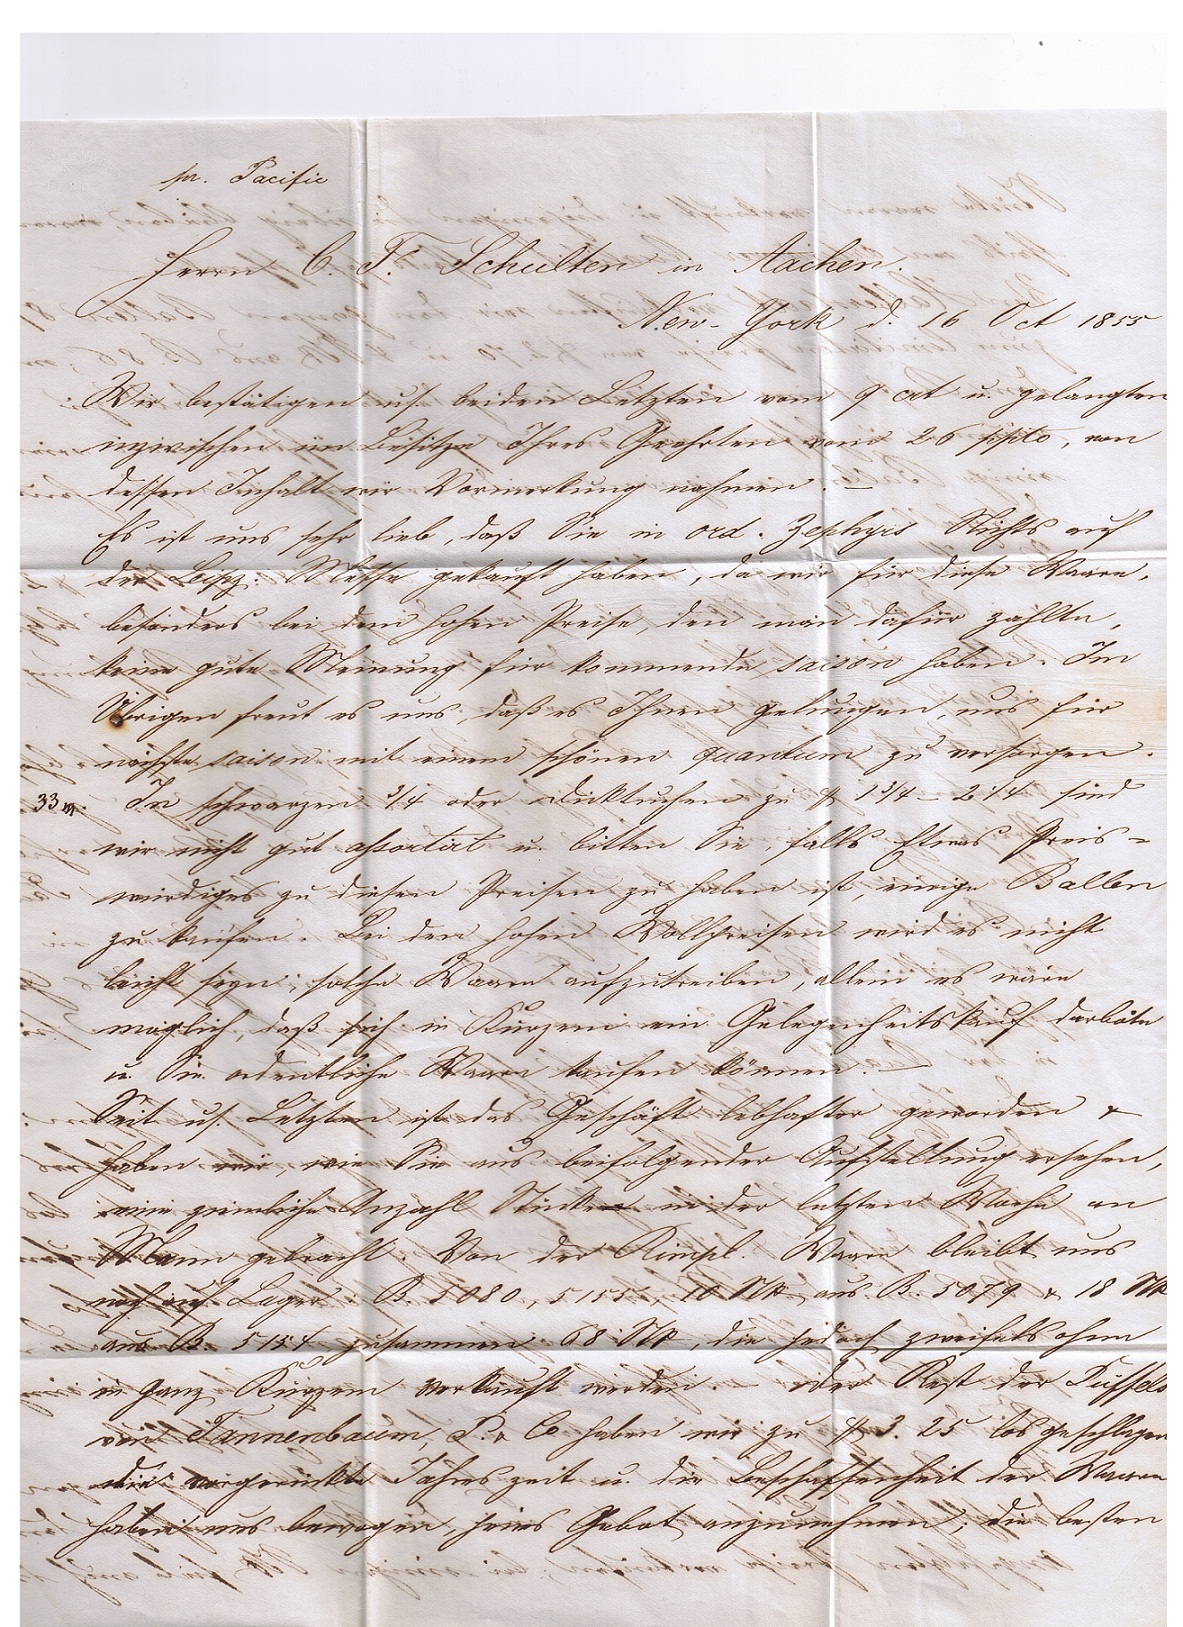 pr. Pacific
Herrn C. F. Schulten in Aachen.
New-York d. 16 Oct 1855
Wir bestätigen uns. beiden Letzten vom 9 crt u. gelangten
inzwischen im Besitze Ihres Geehrten vom 26 ppto, von
dessen Inhalt wir Vormerkung nahmen. —
Es ist uns sehr lieb, daß Sie in ord. Zephyrs Nichts auf
der Leipz: Messe gekauft haben, da wir für diese Waare,
besonders bei dem hohen Preise, den man dafür zahlte,
keine gute Meinung für kommende saison haben. Im
Übrigen freut es uns, daß es Ihnen gelungen, uns für
nächste saison mit einem schönen quantum zu versorgen.
33 In schwarzen 3/4 oder Dicktuchen zu $ 1 3/4 – 2 1/4 sind
wir nicht gut assortirt u. bitten Sie, falls Etwas Preis=
würdiges zu diesen Preisen zu haben ist, einige Ballen
zu kaufen. Bei den hohen Wollpreisen wird es nicht
leicht seyn, solche Waare aufzutreiben, allein es wäre
möglich, daß sich in Kurzem ein Gelegenheitskauf darböte
u. Sie ordentliche Waare kaufen können. —
Seit uns. Letzten ist das Geschäft lebhafter geworden &
haben wir, wie Sie aus beifolgender Aufstellung ersehen,
eine ziemliche Anzahl Stücke in der letzten Woche an
Mann gebracht. Von der Waare bleibt uns
noch auf Lager: B. 5080, 5155, 10 Stk aus B. 5079 & 18 Stk
aus B. 5154 zusammen 68 Stk, die jedoch zweifelsohne
in ganz Kurzem verkauft werden. — Der Rest der Düffels
von Tannenbaum, P. & Co haben wir zu $ 3. 25 losgeschlagen
die vorgerückte Jahreszeit u. die Beschaffenheit der Waare
haben uns bewogen, jenes Gebot anzunehmen; die besten